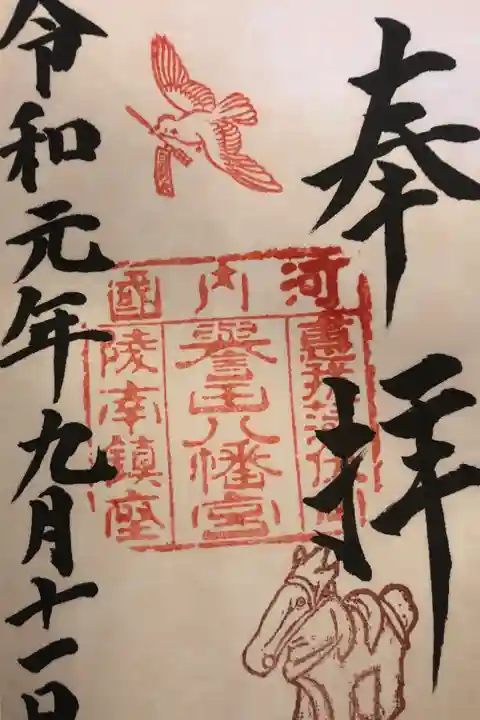 奉拝
河内國
惠我藻伏岡
譽田八幡宮
陵南鎮座
令和元年九月十一日